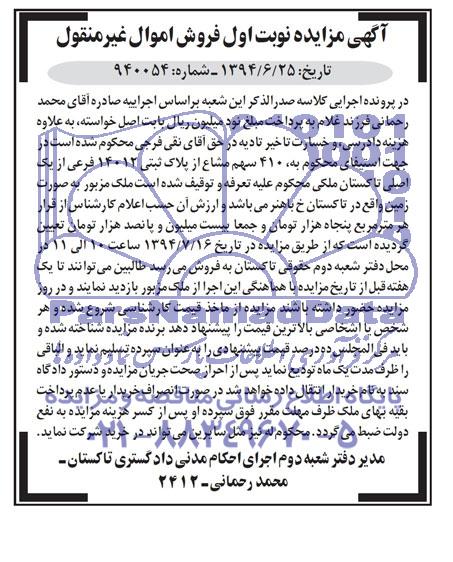 آگهی مزایده نوبت اول فروش اموال غیرمنقول
تاریخ: ۱۳۹۴/۶/۲۵ ـ شماره: ۹۴۰۰۵۴
در پرونده اجرایی کلاسه صدرالذکر این شعبه براساس اجراییه صادره آقای محمد
رحمانی فرزند غلام به پرداخت مبلغ نود میلیون ریال بابت اصل خواسته، به علاوه
هزینه دادرسی، و خسارت تاخیر تادیه در حق آقای نقی فرجی محکوم شده است در
جهت استیفای محکوم به، ۴۱۰ سهم مشاع از پلاک ثبتی ۱۴۰۱۲ فرعی از یک
اصلی تاکستان ملکی محکوم علیه تعرفه و توقیف شده است ملک مزبور به صورت
زمین واقع در تاکستان خ باهنر می‌باشد و ارزش آن حسب اعلام کارشناس از قرار
هر مترمربع پنجاه هزار تومان و جمعا بیست میلیون و پانصد هزار تومان تعیین
گردیده است که از طریق مزایده در تاریخ ۱۳۹۴/۷/۱۶ ساعت ۱۰ الی ۱۱ در
محل دفتر شعبه دوم حقوقی تاکستان به فروش می‌رسد طالبین می‌توانند تا یک
هفته قبل از تاریخ مزایده با هماهنگی این اجرا از ملک مزبور بازدید نمایند و در روز
مزایده حضور داشته باشند مزایده از ماخذ قیمت کارشناسی شروع شده و هر
شخص یا اشخاصی بالاترین قیمت را پیشنهاد دهد برنده مزایده شناخته شده و
باید فی‌المجلس ده درصد قیمت پیشنهادی را به عنوان سپرده تسلیم نماید و الباقی
را ظرف مدت یک ماه تودیع نماید پس از احراز صحت جریان مزایده و دستور دادگاه
سند به نام خریدار انتقال داده خواهد شد در صورت انصراف خریدار یا عدم پرداخت
بقیه بهای ملک ظرف مهلت مقرر فوق سپرده او پس از کسر هزینه مزایده به نفع
دولت ضبط می‌گردد. محکوم له نیز مثل سایرین می‌تواند در خرید شرکت نماید.
مدیر دفتر شعبه دوم اجرای احکام مدنی دادگستری تاکستان ـ
محمد رحمانی ـ ۲۴۱۲
ParsNamadData
پایگاه اطلاع رسانی مناقصه و مزایده
۰۲۱-۸۸۳۴۹۶۷۰-۵